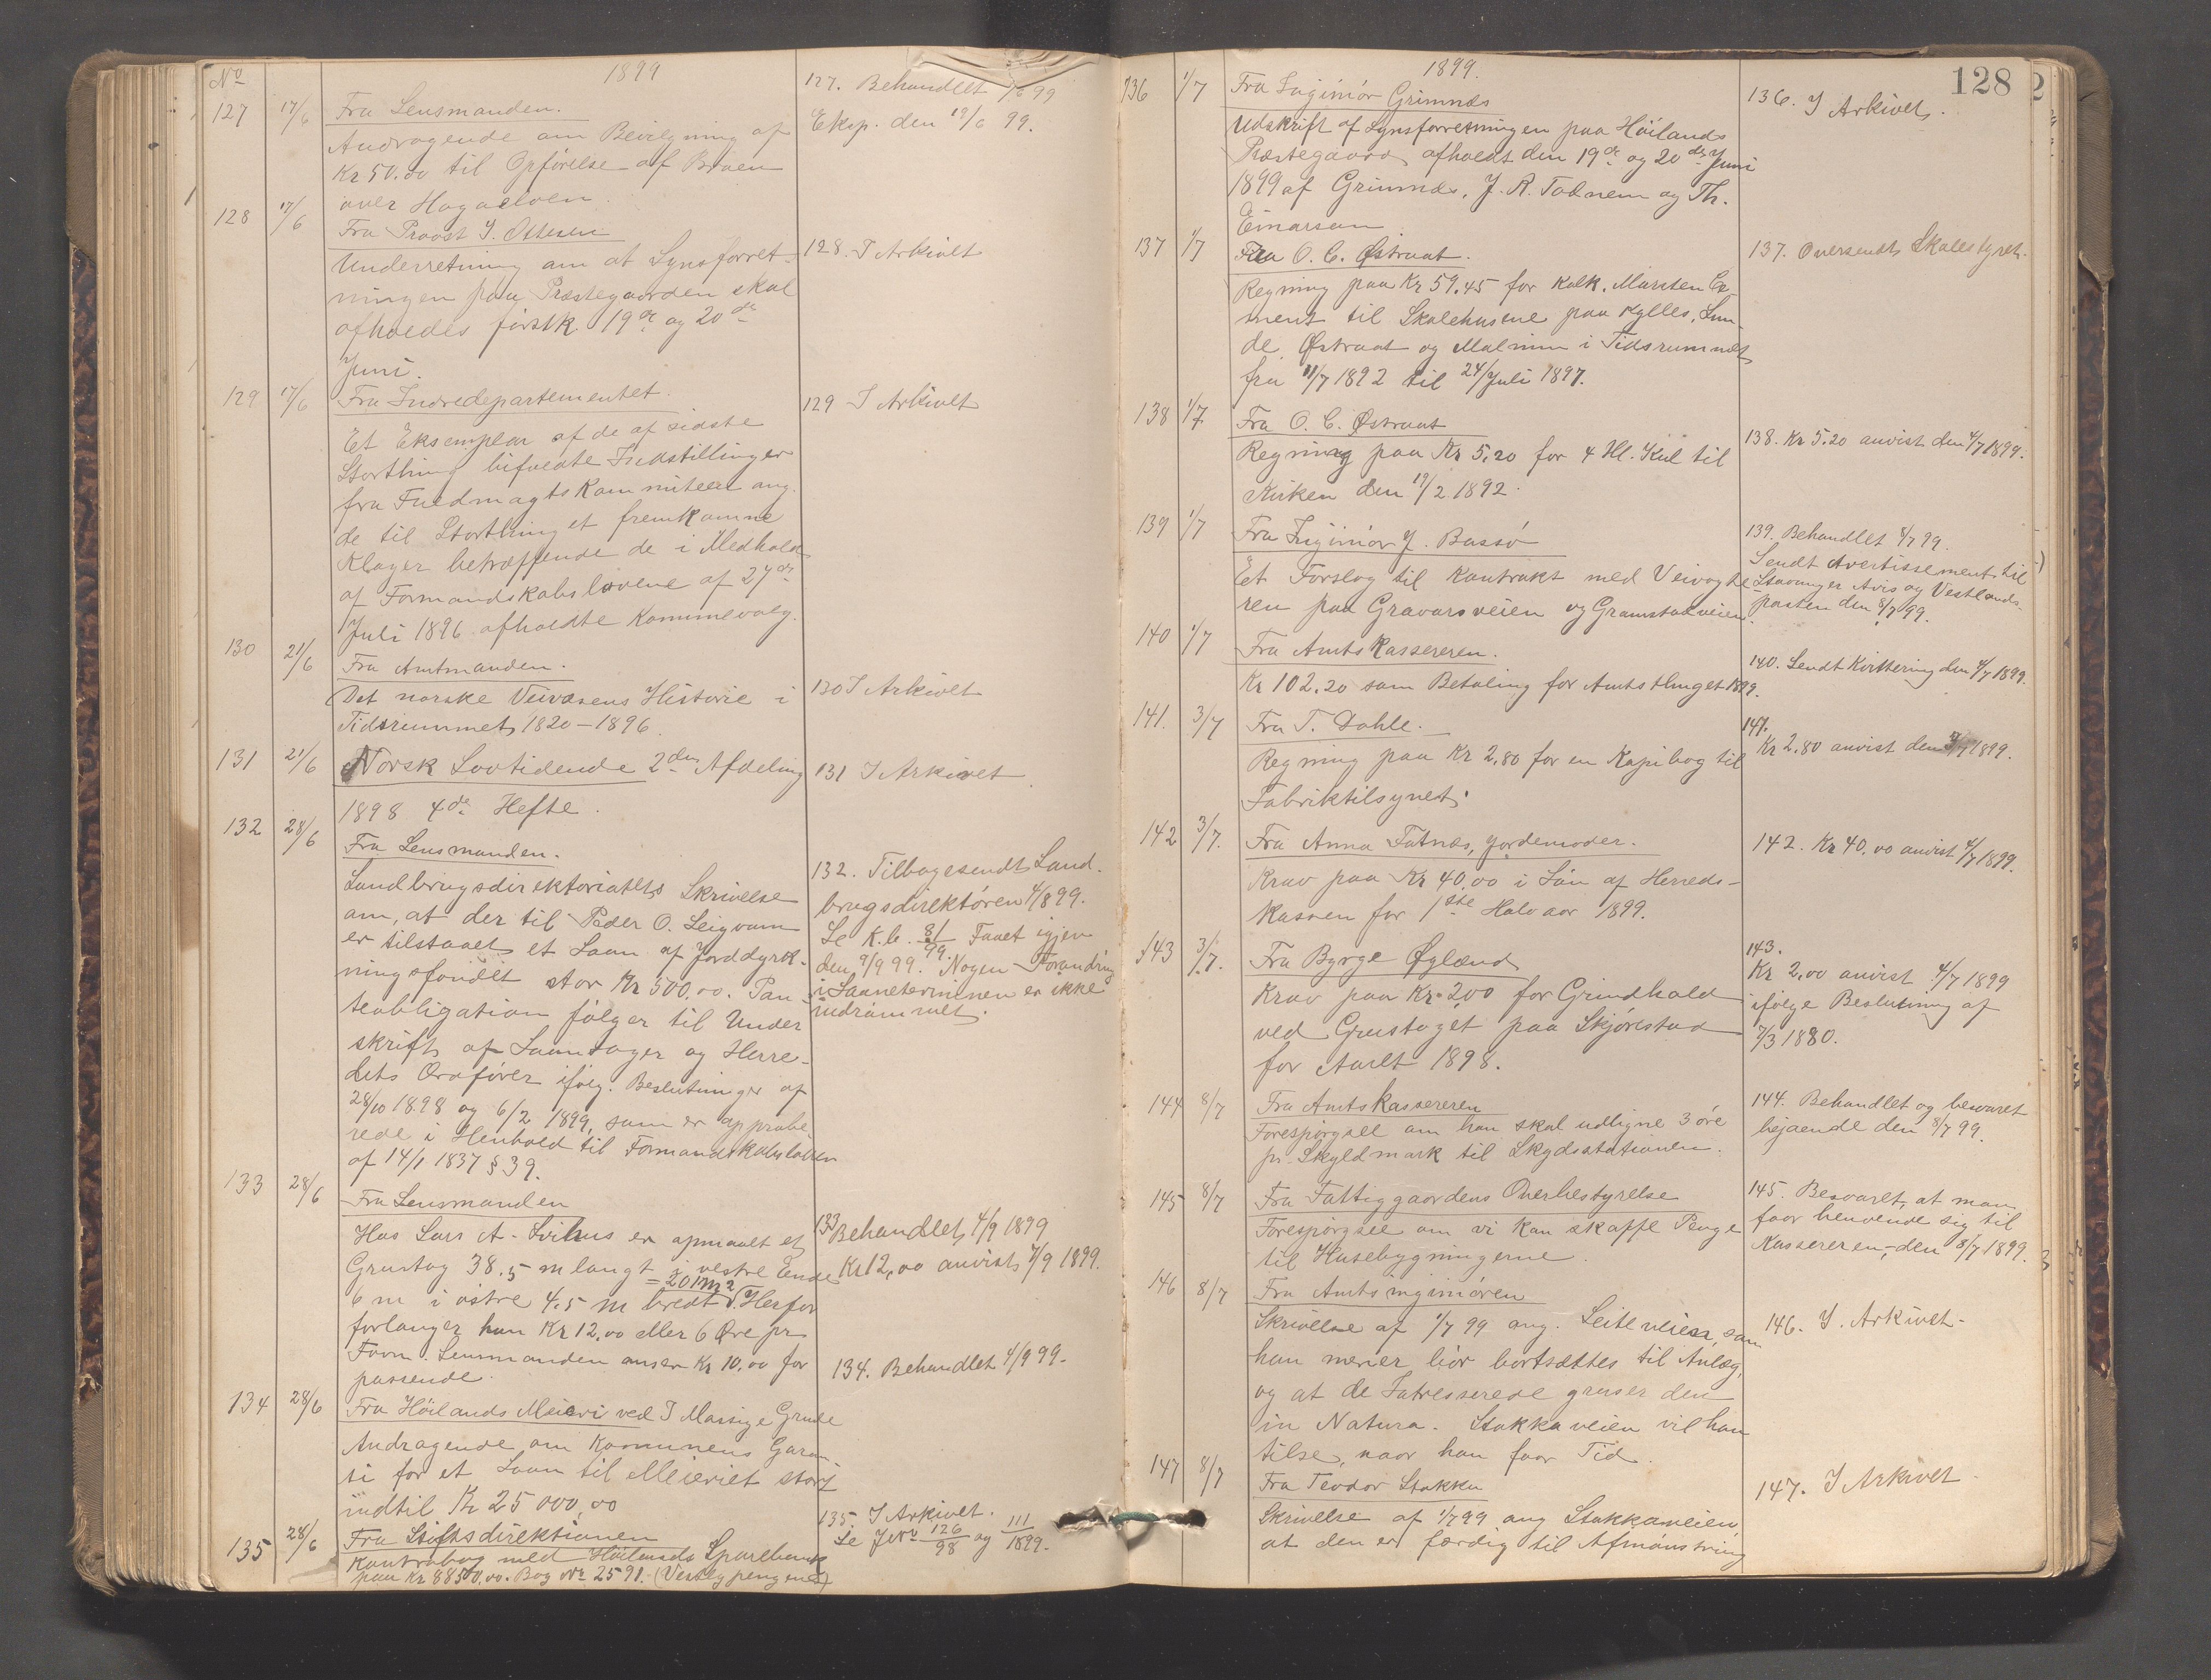 No 1899
127 17/6 Fra Lensmanden.
Andragende om Bevilgning af
Kr 50.00 til Opførelse af Broen
over Hagaelven.
127. Behandlet 99
Eksp. den 19/6 99.
128 17/6 Fra Provst J. Ottesen
Underretning om at Synsforret-
ningen paa Præstegaarden skal
afholdes førstk. 19de og 20de
Juni.
128. I Arkivet
129 17/6 Fra Indredepartementet.
Et Eksemplar af de af sidste
Storthing bifaldte Indstillinger
fra Fuldmagts Kommiteen ang.
de til Storthinget fremkomne
Klager betræffende de i Medhold
af Formandskabslovene af 27de
Juli 1896 afholdte Kommunevalg.
129 I Arkivet
130 21/6 Fra Amtmanden.
Det norske Veivæsens Historie i
Tidsrummet 1820-1896.
130 I Arkivet
131 21/6 Norsk Lovtidende 2den Afdeling
1898 4de Hefte.
131 I Arkivet
132 28/6 Fra Lensmanden.
Landbrugsdirektoriatets Skrivelse
om, at der til Peder O. Leigvam
er tilstaaet et Laan af Jorddyrk-
ningsfondet stor Kr 500,00. Pan-
teobligation følger til Under
skrift af Laantager og Herre-
dets Ordfører ifølg. Beslutninger af
28/10 1898 og 6/2 1899, som er approbe-
rede i Henhold til Formandskabsloven
af 14/1 1837 § 39.
132. Tilbagesendt Land-
brugsdirektøren 4/8 99.
Se K.b. 81/99. Faaet igjen
den 9/9 99. Nogen Forandring
i Laaneterminen er ikke
indrømmet.
133 28/6 Fra Lensmanden
Hos Lars A. Svihus er opmaalt et
Grustag 38.5 m langt i vestre Ende
6 m i østre 4.5 m bredt = 201 m2. Herfor
forlanger han Kr 12.00 eller 6 Øre pr
Favn. Lensmanden anser Kr 10.00 for
passende.
133 Behandlet 4/9 1899
Kr 12,00 anvist 7/9 1899.
134 28/6 Fra Høilands Meieri ved T Massige Grude
Andragende om Kommunens Garan-
ti for et Laan til Meieriet stort
indtil Kr 25 000,00
134. Behandlet 4/9 99.
135 28/6 Fra Stiftsdirektionen
Kontrabog med Høilands Sparebank
paa Kr 8850,00. Bog No 2591. (Vestly pengene)
135. I Arkivet.
Se J No 126/98 og 111/1899.
1899. 128
136 1/7 Fra Inginiør Grimnæs
Udskrift af Synsforretningen paa Høilands
Præstegaard afholdt den 19de og 20de Juni
1899 af Grimnæs, J. R. Todnem og Th.
Einarsen
136. I Arkivet.
137 1/7 Fra O. C. Østraat.
Regning paa Kr 59.45 for Kalk. Mursten Ce-
ment til Skolehusene paa Kylles, Lun-
de, Østraat og Malmim i Tidsrummet
fra 11/7 1892 til 24/Juli 1897.
137. Oversendt Skolestyret.
138 1/7 Fra O. C. Østraat
Regning paa Kr 5,20 for 4 Hl. Kul til
Kirken den 19/2 1892.
138. Kr 5.20 anvist den 4/7 1899.
139 1/7 Fra Inginiør J. Bassø
Et Forslag til Kontrakt med Veivogte-
ren paa Gravarsveien og Gramstadveien.
139. Behandlet 8/7 99.
Sendt Avertissement til
Stavanger Avis og Vestlands-
posten den 8/7 99.
140 1/7 Fra Amtskassereren.
Kr 102.20 som Betaling for Amtsthinget 1899.
140. Sendt Kvittering den 4/7 1899.
141. 3/7 Fra T. Dahle.
Regning paa Kr 2.80 for en Kopibog til
Fabriktilsynet.
141.
Kr 2.80 anvist den 4/7 1899.
142 3/7. Fra Anna Tatnæs, Jordemoder.
Krav paa Kr 40.00 i Løn af Herreds-
kassen for 1ste Halvaar 1899.
142. Kr 40.00 anvist 4/7 1899.
143 3/7. Fra Byrge Øglænd
Krav paa Kr. 2,00 for Grindhold
ved Grustaget paa Skjørestad
for Aaret 1898.
143.
Kr 2.00 anvist 4/7 1899
ifølge Beslutning af
7/3 1880.
144 8/7 Fra Amtskassereren
Forespørgsel om han skal udligne 3 øre
pr. Skyldmark til Skydsstationen.
144. Behandlet og besvaret
bejaende den 8/7 99.
145 8/7 Fra Fattiggaardens Overbestyrelse
Forespørgsel om vi kan skaffe Penge
til Husebygningerne.
145. Besvaret, at man
faar henvende sig til
Kassereren, den 8/7 1899.
146 8/7 Fra Amtsinginiøren
Skrivelse af 1/7 99 ang. Leiteveien, som
han mener bør bortsættes til Anlæg,
og at de Interesserede gruser den
in Natura. Stokkaveien vil han
tilse, naar han faar Tid.
146. I. Arkivet.
147 8/7 Fra Teodor Stokka
Skrivelse af 1/7 99 ang Stokkaveien,
at den er færdig til Afmønstring
147. I Arkivet